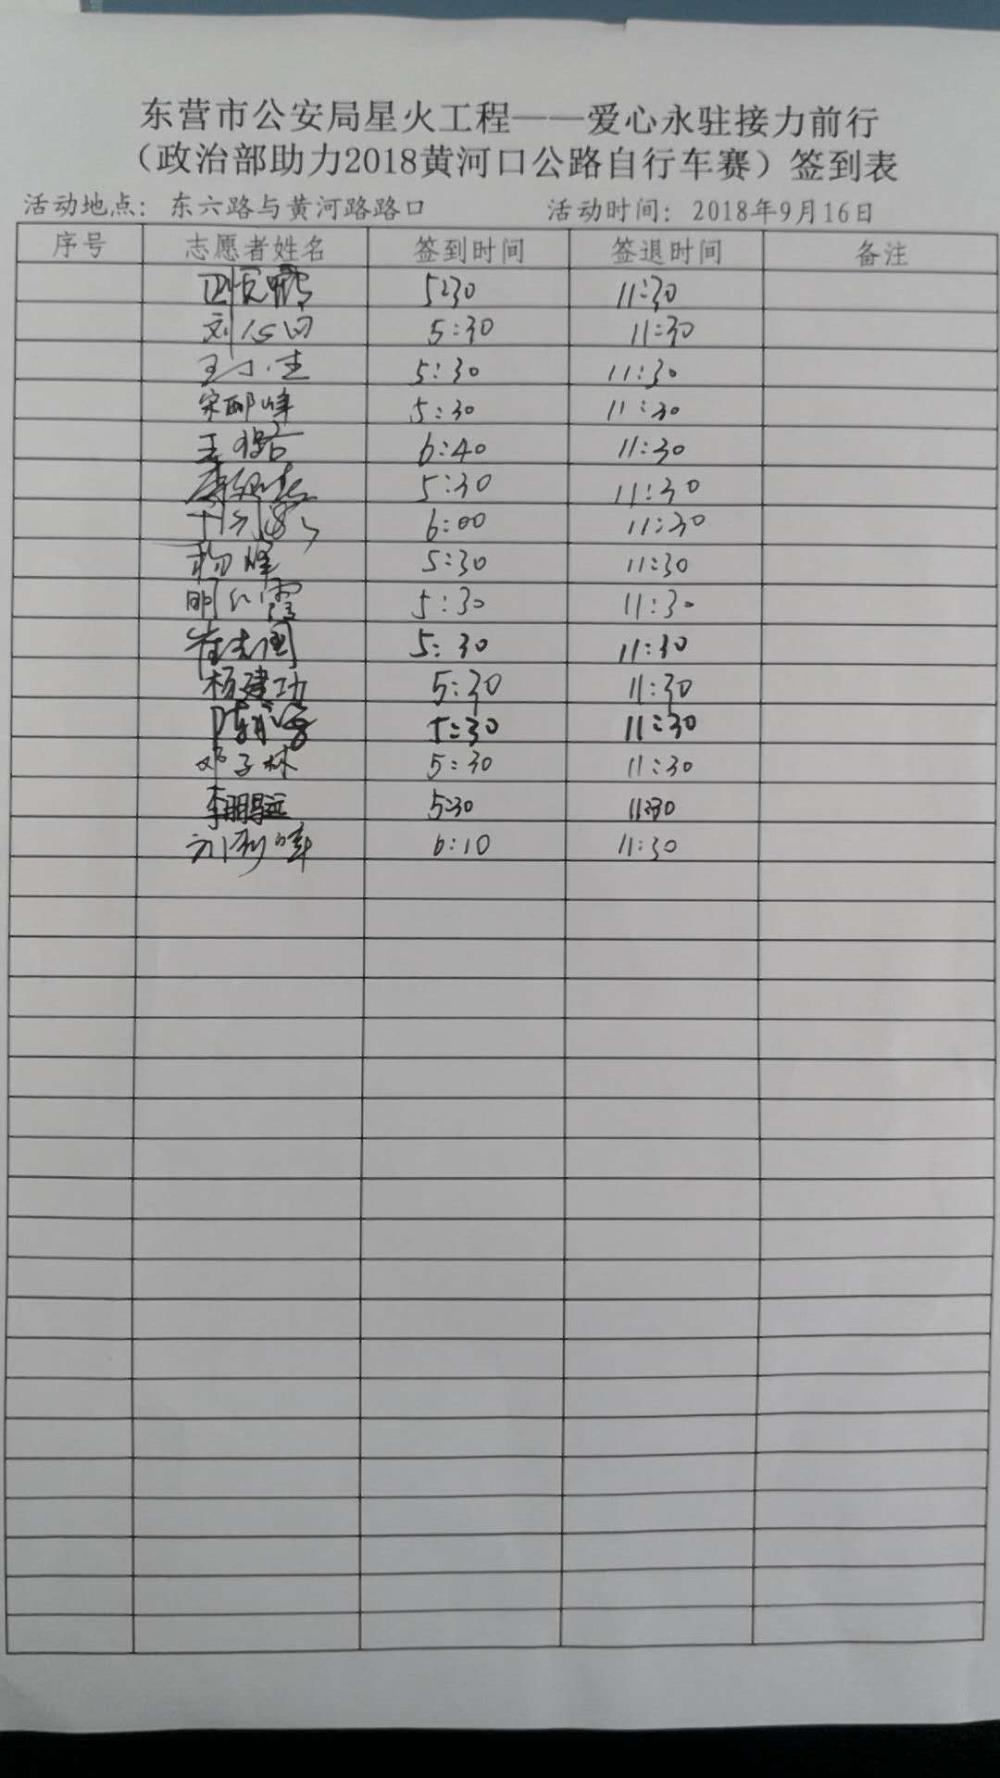 东营市公安局星火工程——爱心永驻接力前行
（政治部助力2018黄河口公路自行车赛）签到表
活动地点：东六路与黄河路路口 活动时间：2018年9月16日
序号 志愿者姓名 签到时间 签退时间 备注
5:30 11:30
刘 5:30 11:30
王 5:30 11:30
宋 峰 5:30 11:30
王 6:40 11:30
5:30 11:30
6:00 11:30
杨峰 5:30 11:30
5:30 11:30
崔志国 5:30 11:30
杨建功 5:30 11:30
陈 5:30 11:30
邓子林 5:30 11:30
李鹏远 5:30 11:30
6:10 11:30